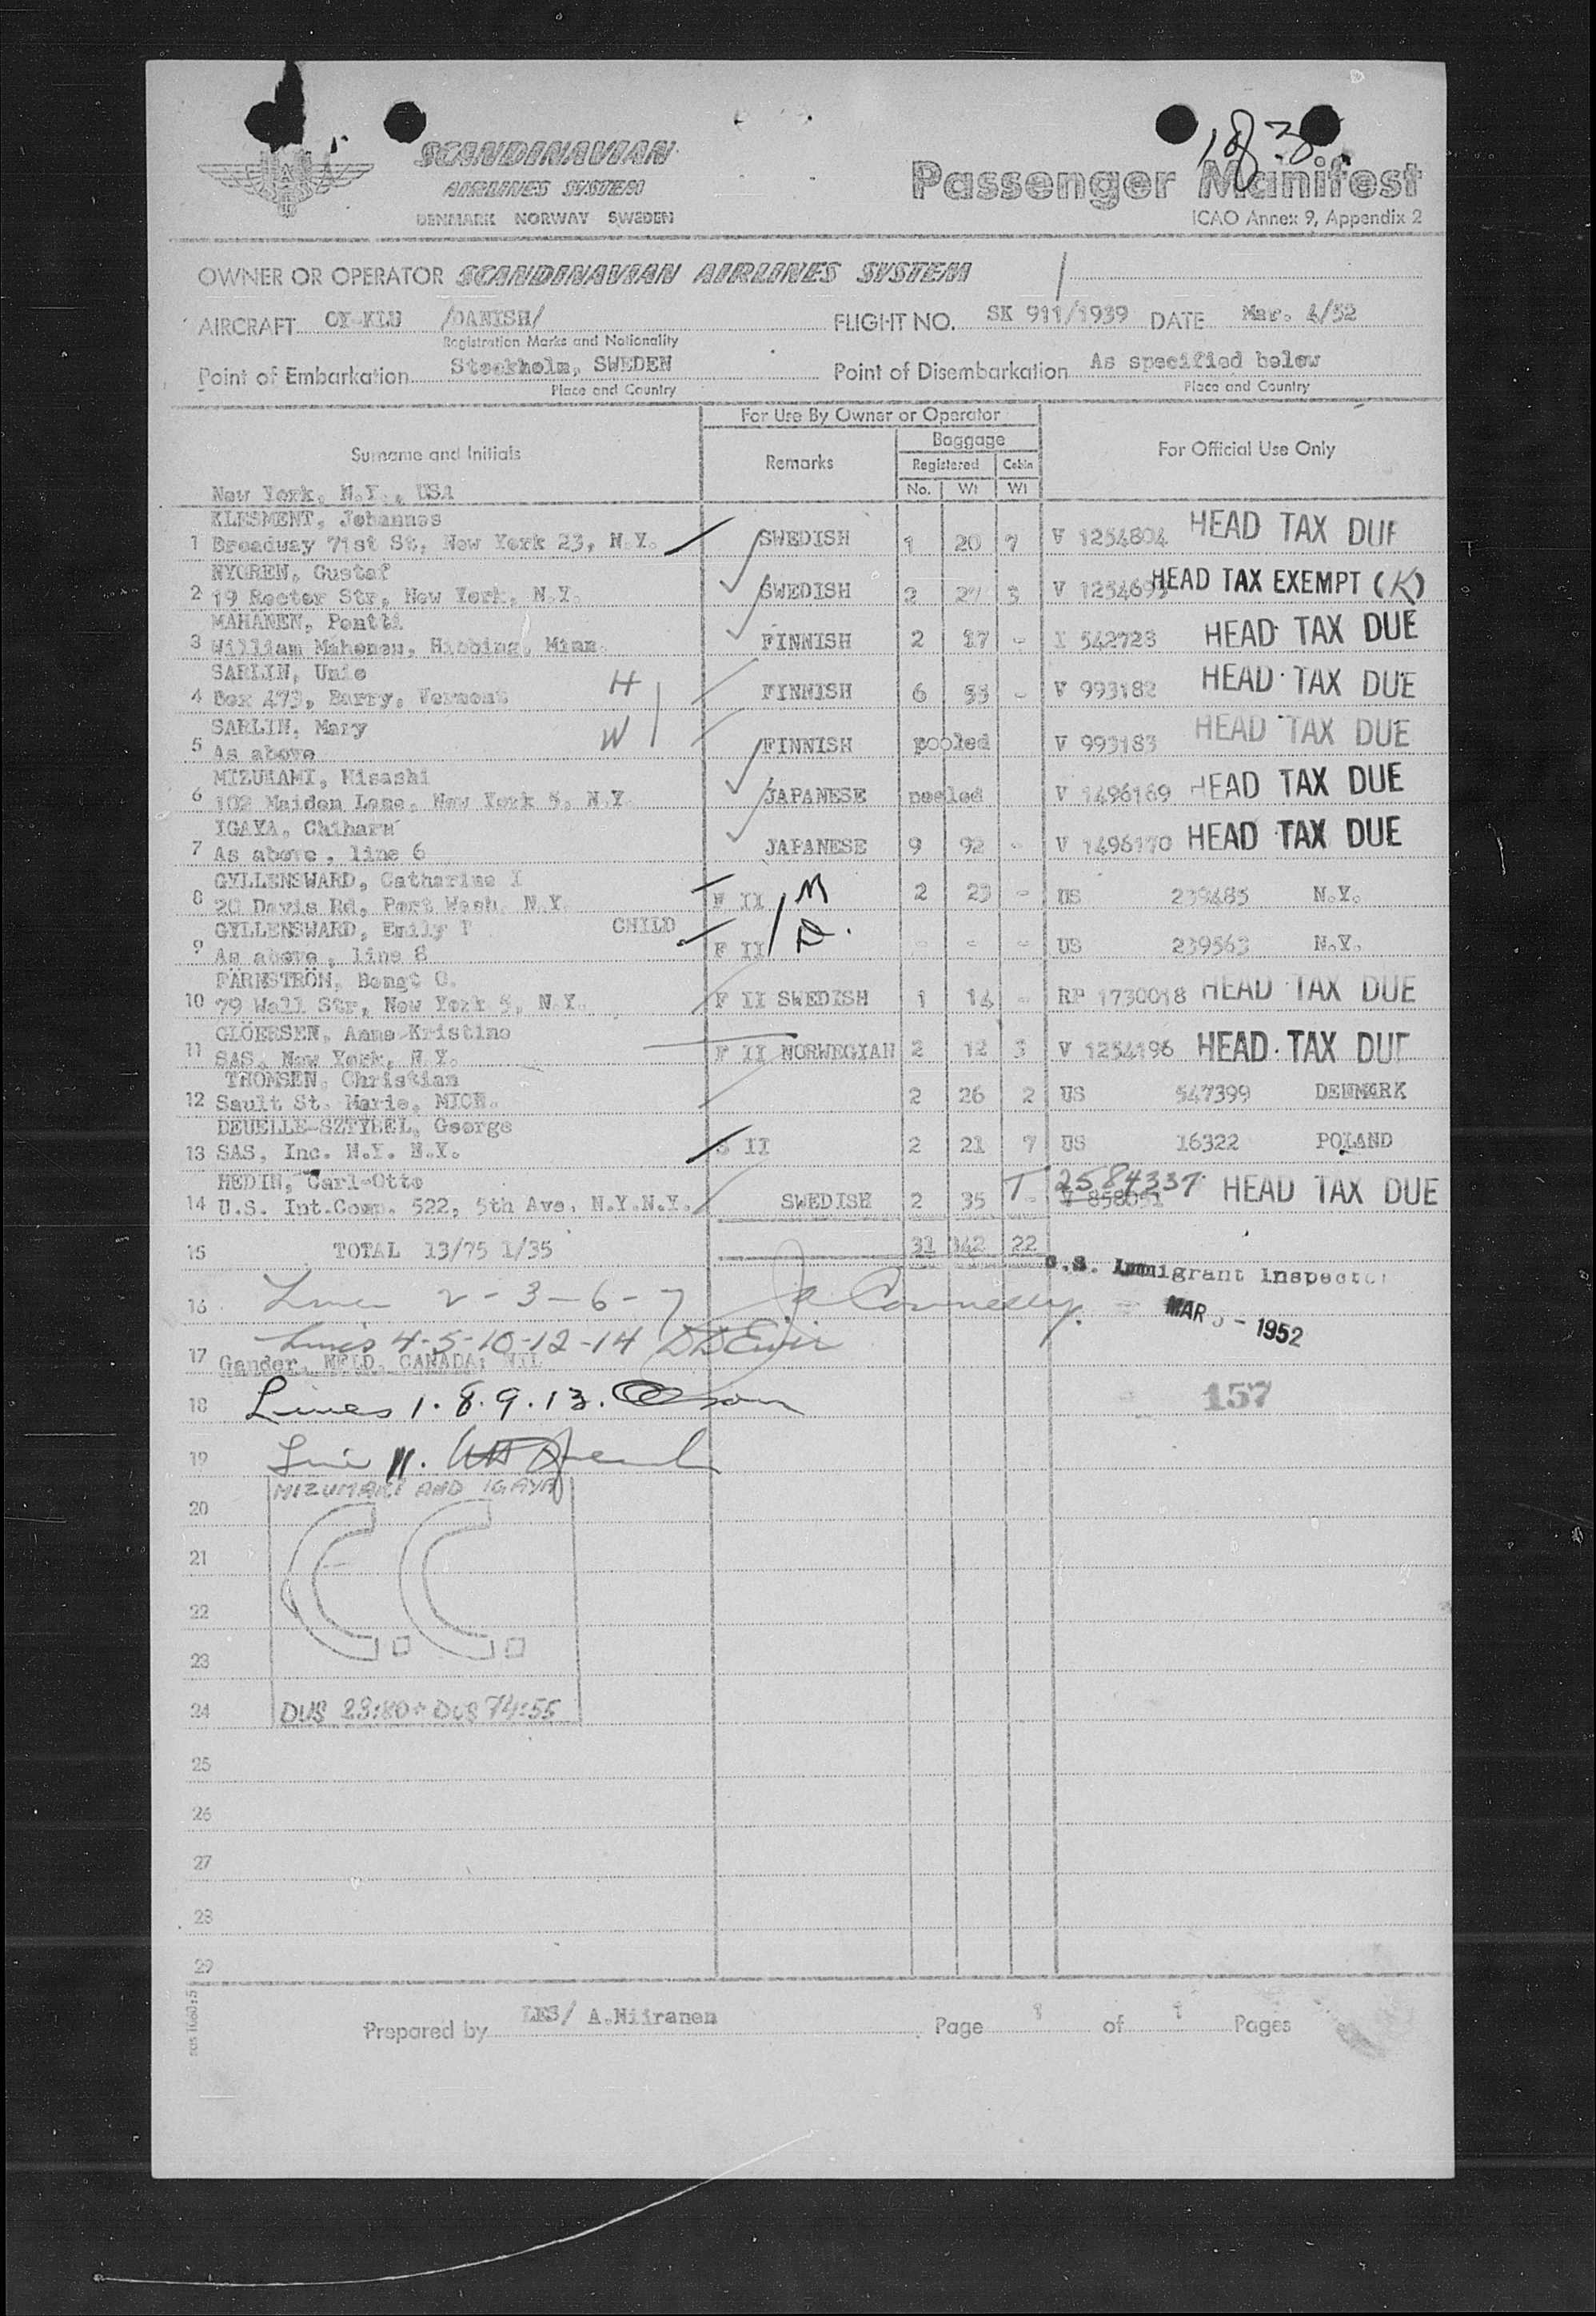 1 of 3
SCANDINAVIAN
AIRLINES SYSTEM
DENMARK NORWAY SWEDEN
Passenger Manifest
ICAO Annex 9, Appendix 2
OWNER OR OPERATOR SCANDINAVIAN AIRLINES SYSTEM
AIRCRAFT OY-KLU /DANISH/ FLIGHT NO. SK 911/1939 DATE Mar. 4/52
Registration Marks and Nationality
Point of Embarkation Stockholm, SWEDEN Point of Disembarkation As specified below
Place and Country Place and Country
For Use By Owner or Operator
Surname and Initials Remarks Baggage For Official Use Only
Registered Cabin
No. Wt Wt
New York, N.Y., USA
KLESMENT, Johannes
1 Broadway 71st St, New York 23, N.Y. SWEDISH 1 20 7 V 1254804 HEAD TAX DUE
NYGREN, Gustaf
2 19 Rector Str, New York, N.Y. SWEDISH 2 27 3 V 1254693 HEAD TAX EXEMPT (K)
MAHANEN, Pentti
3 William Mahonen, Hibbing, Minn. FINNISH 2 17 - I 542723 HEAD TAX DUE
SARLIN, Unio H
4 Box 473, Barry, Vermont FINNISH 6 55 - V 993182 HEAD TAX DUE
SARLIN, Mary W
5 As above FINNISH pooled V 993183 HEAD TAX DUE
MIZUKAMI, Hisashi
6 102 Maiden Lane, New York 5, N.Y. JAPANESE pooled V 1496169 HEAD TAX DUE
IGAYA, Chiharu
7 As above, line 6 JAPANESE 9 92 - V 1496170 HEAD TAX DUE
GYLLENSWARD, Catharine I M
8 20 Davis Rd, Port Wash. N.Y. F II 2 23 - US 239485 N.Y.
GYLLENSWARD, Emily T CHILD D.
9 As above, line 8 F II - - - US 239563 N.Y.
FÄRNSTRÖM, Bengt O.
10 79 Wall Str, New York 5, N.Y. F II SWEDISH 1 14 - RP 1730018 HEAD TAX DUE
GLÖERSEN, Anne-Kristine
11 SAS, New York, N.Y. F II NORWEGIAN 2 12 3 V 1254196 HEAD TAX DUE
THOMSEN, Christian
12 Sault St. Marie, MICH. 2 26 2 US 547399 DENMARK
DEUELLE-SZTYBEL, George
13 SAS, Inc. N.Y. N.Y. S II 2 21 7 US 16322 POLAND
HEDIN, Carl-Otto T 2584337
14 U.S. Int.Comp. 522, 5th Ave, N.Y.N.Y. SWEDISH 2 35 - V 858051 HEAD TAX DUE
15 TOTAL 13/75 1/35 31 342 22
U.S. Immigrant Inspector
16 Lines 2-3-6-7 Connelly
MAR 5 - 1952
Lines 4-5-10-12-14
17 Gander, NFLD, CANADA: NIL
18 Lines 1.8.9.13. 157
19 Line 11.
MIZUMAKI AND IGAYA
20
21
C.C.
22
23
24 DUS 23:80 + DUS 74:55
25
26
27
28
29
Prepared by LES/ A.Niiranen Page 1 of 1 Pages